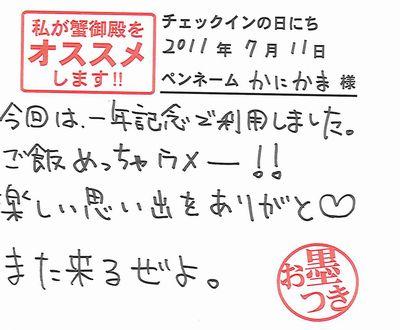 私が蟹御殿を
オススメ
します!!
チェックインの日にち
2011年7月11日
ペンネーム かにかま 様
今回は、一年記念で利用しました。
ご飯めっちゃウメー!!
楽しい思い出をありがと♡
また来るぜよ。
お墨つき